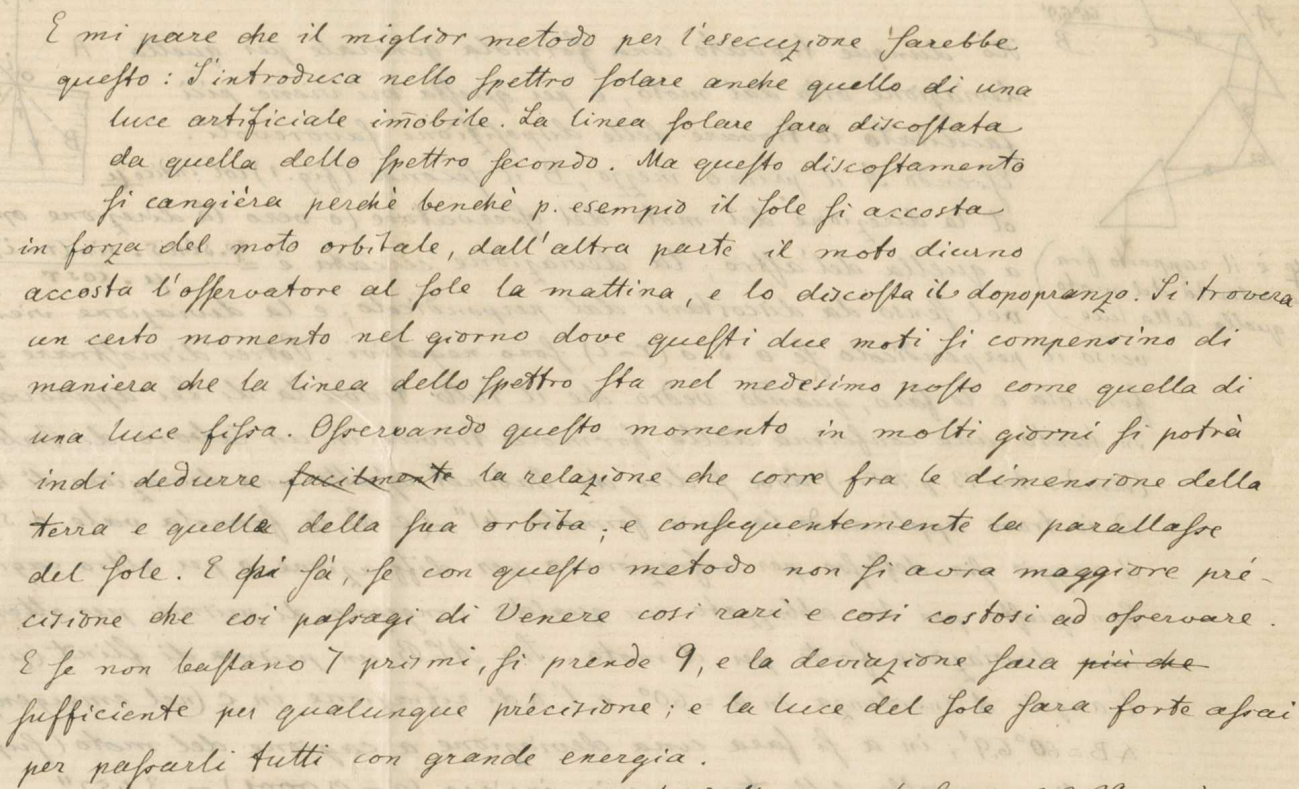 E mi pare che il miglior metodo per l'esecuzione sarebbe
questo: S'introduca nello spettro solare anche quello di una
luce artificiale im̄obile. La linea solare sara discostata
da quella dello spettro secondo. Ma questo discostamento
si cangièra perchè benchè p. esempio il sole si accosta
in forza del moto orbitale, dall'altra parte il moto diurno
accosta l'osservatore al sole la mattina, e lo discosta il dopopranzo. Si trovera
un certo momento nel giorno dove questi due moti si compensino di
maniera che la linea dello spettro sta nel medesimo posto come quella di
una luce fissa. Osservando questo momento in molti giorni si potrà
indi dedurre facilmente la relazione che corre fra le dimensione della
terra e quella della sua orbita; e consequentemente la parallasse
del sole. E chi sà, se con questo metodo non si avra maggiore pré-
cisione che coi passagi di Venere cosi rari e cosi costosi ad osservare.
E se non bastano 7 prismi, si prende 9, e la deviazione sara più che
sufficiente per qualunque précisione; e la luce del sole sara forte assai
per passarli tutti con grande energia.